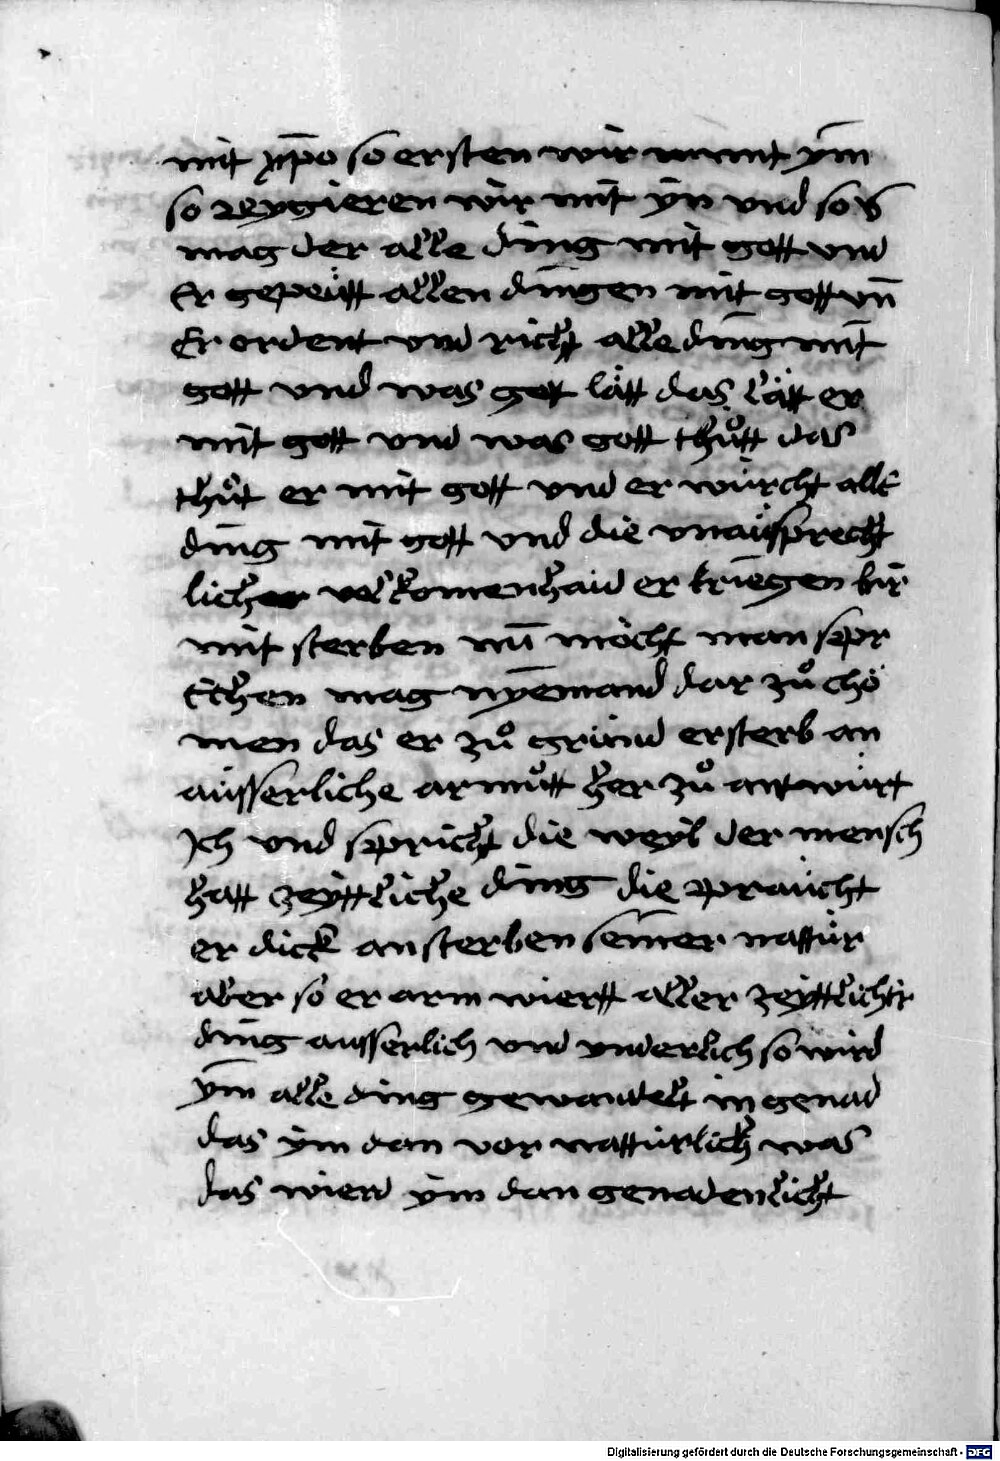 mit xp̄o so ersten wir mit ym̄
so reygieren wir mit ȳn vnd so v̾
mag der alle ding mit gott vnd
Er gepeütt allen dingen mit gott vn̄
Er ordent vnd richt alle ding mit
gott vnd was gott lätt das lätt er
mit gott vnd was gott thůtt das
thůt er mit gott vnd er würcht alle
ding mit gott vnd die vnaüsprecht
licher volkomenhaid er kriegen wir
mit sterben nu̅ möcht man spr
echen mag nyemand dar zů chö
men das er zů gründ ersterb an
aüsserliche armůtt her zů antwürt
Ich vnd spricht die weyl der mensch
hatt zeyttliche ding die praücht
er dick an sterben seiner nattür
aber so er arm wiertt aller zeyttlicher
ding ausserlich vnd ynderlich so wird
ym̄ alle ding gewandelt in genad
das ym dan vor nattürlich was
das wierd ym dan genadenlicht
Digitalisierung gefördert durch die Deutsche Forschungsgemeinschaft - DFG